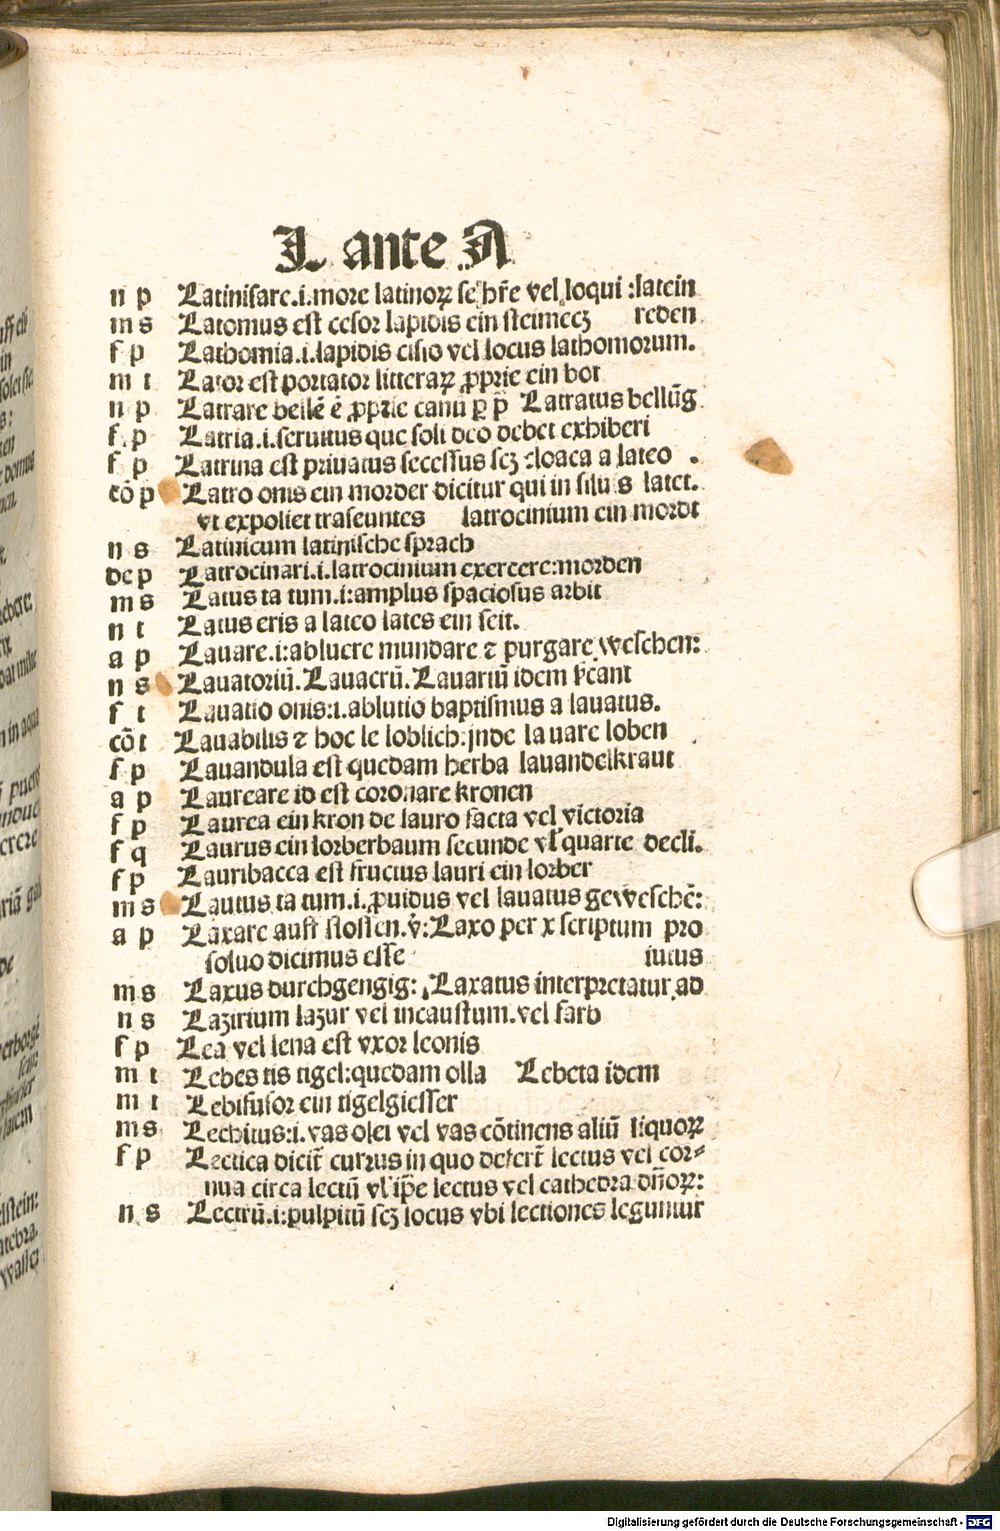 L ante A
n p Latinisare.i.more latinoꝝ se hr̄e vel loqui :latein
m s Latomus est cesor lapidis ein steimecz reden
f p Lathomia.i.lapidis cisio vel locus lathomorum.
m t Lator est portator litteraꝝ ꝓprie ein bot
n p Latrare bellē ē ꝓprie canū ꝑ p̄ Latratus bellūg
f.p Latria.i.seruitus que soli deo debet exhiberi
f p Latrina est priuatus secessus scꝫ cloaca a lateo .
cō p Latro onis ein morder dicitur qui in siluis latet.
vt expoliet traseuntes latrocinium ein mordt
n s Latinicum latinische sprach
de p Latrocinari.i.latrocinium exercere:morden
m s Latus ta tum.i:amplus spaciosus arbit
n t Latus eris a lateo lates ein seit.
a p Lauare.i:abluere mundare ⁊ purgare weschen:
n s Lauatoriū.Lauacrū.Lauariū idem
f t Lauatio onis:i.ablutio baptismus a lauatus.
cō t Lauabilis ⁊ hoc le loblich:jnde lauare loben
f p Lauandula est quedam herba lauandelkraut
a p Laureare id est coronare kronen
f p Laurea ein kron de lauro facta vel victoria
f q Laurus ein lorberbaum secunde vl̓ quarte decli.
f p Lauribacca est fructus lauri ein lorber
m s Lautus ta tum.i.ꝓuidus vel lauatus geweschē:
a p Laxare auff stossen.v̄:Laxo per x scriptum pro
soluo dicimus esse iutus
m s Laxus durchgengig: Laxatus interpretatur ad
n s Lazirium lazur vel incaustum.vel farb
f p Lea vel lena est vxor leonis
m t Lebes tis tigel:quedam olla Lebeta idem
m t Lebifusor ein tigelgiesser
m s Lechitus:i.vas olei vel vas cōtinens aliū liquoꝝ
f p Lectica dicit̄ currus in quo defert̄ lectus vel cor⸗
nua circa lectū vl̓ ip̄e lectus vel cathedra dn̄oꝝ:
n s Lectrū.i:pulpitū scꝫ locus vbi lectiones leguntur
Digitalisierung gefördert durch die Deutsche Forschungsgemeinschaft - DFG